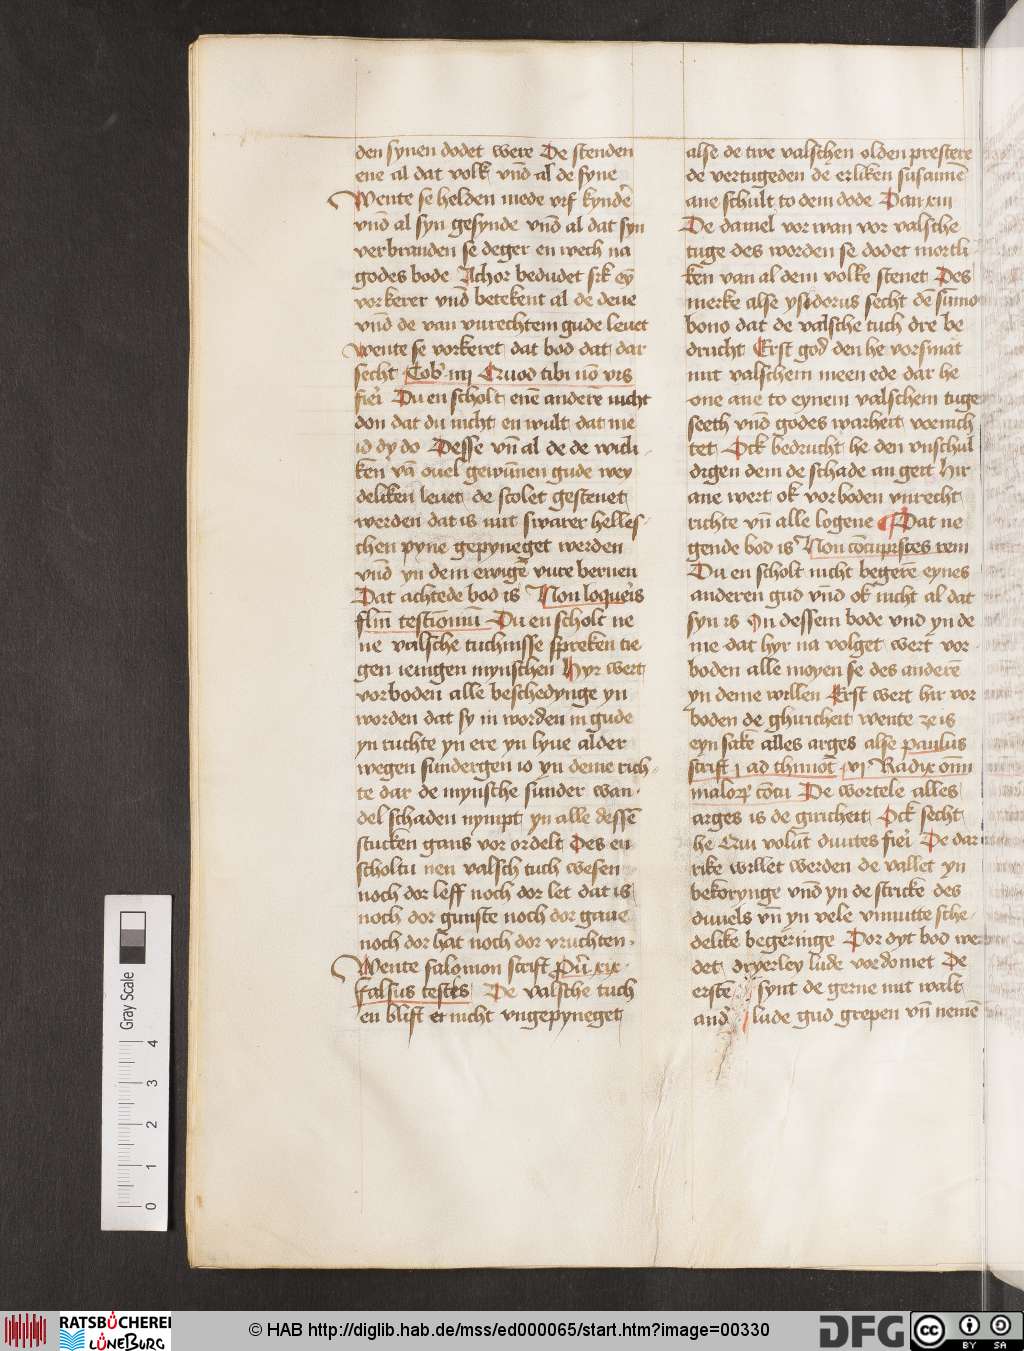 den synen dodet were De stenden
ene al dat volk vnd al de syne
Wente se helden mede vrß kynder̄
vnd al syn gesynde vnd al dat syn
verbranden se deger en wech na
godes bode Achor bedudet sik ey
vorkerer vnd betekent al de deue
vnd de van vnrechtem gude leuet
Wente se vorkeret dat bod dat dar
secht Tob iiij Quod tibi nō vis
fieri Du en scholt enē anderē nicht
don dat du nicht en wult dat me
id dy do Desse vn̄ al de de wicli
ken vā ouel gewūnen gude wey
deliken leuet de scolet gestenet
werden dat is mit swarer helles
chen pyne gepyneget werden
vnd yn dem ewigē vure bernen
Dat achtede bod is Non loqueris
flm̄ testīoniū Du en scholt ne
ne valsche tuchnisse spreken tie
gen ienigen mynschen Hyr wert
vorboden alle beschedynge yn
worden dat sy in worden in gude
yn ruchte yn ere yn lyue alder
wegen sundergen io yn deme rich
te dar de mynsche sunder wan
del schaden nympt yn alle dessē
stucken gans vor ordelt Des en
scholtu nen valsch tuch wesen
noch dor leff noch dor let dat is
noch dor gunste noch dor gaue
noch dor hat noch dor vruchten
Wente salomon scrift Pū xix
falsus testes De valsche tuch
en blift er nicht vngepyneget
alse de twe valschen olden prestere
de vertugeden de erliken susannē
ane schult to dem dode Dan xiii
De daniel vorwan vor valsche
tuge des worden se dodet mortli
ken van al dem volke stenet Des
merke alse ysidorus secht dē sūmo
bono dat de valsche tuch dre be
drucht Erst god den he vorsmat
mit valschem meen ede dar he
one ane to eynem valschem tuge
seeth vnd godes warheit vornich
tet Ock bedrucht he den vnschul
digen dem de schade an geit Hir
ane wert ok vorboden vnrecht
richte vn̄ alle logene Dat ne
gende bod is Non cōcupisces rem
Du en scholt nicht begerē eynes
anderen gud vnd ok nicht al dat
syn is In dessem bode vnd yn de
me dat hyr na volget wert vor
boden alle moyense des anderē
yn deme willen Erst wert hir vor
boden de ghiricheit wente ze is
eyn sake alles arges alse paulus
scrift j ad thimot vi Radix omī
malor cōcu De wortele alles
arges is de giricheit Ock secht
he Qui volūt diuites fieri De dar
rike willet werden de vallet yn
bekorynge vnd yn de stricke des
duuels vn̄ yn vele vnnutte sche
delike begeringe Vor dyt bod wer
det dryerley lude vordomet De
erste synt de gerne mit walt
and lude gud grepen vn̄ nemē
Gray Scale
4
3
2
1
0
RATSBÜCHEREI
LÜNEBURG
© HAB http://diglib.hab.de/mss/ed000065/start.htm?image=00330
DFG
cc
BY SA